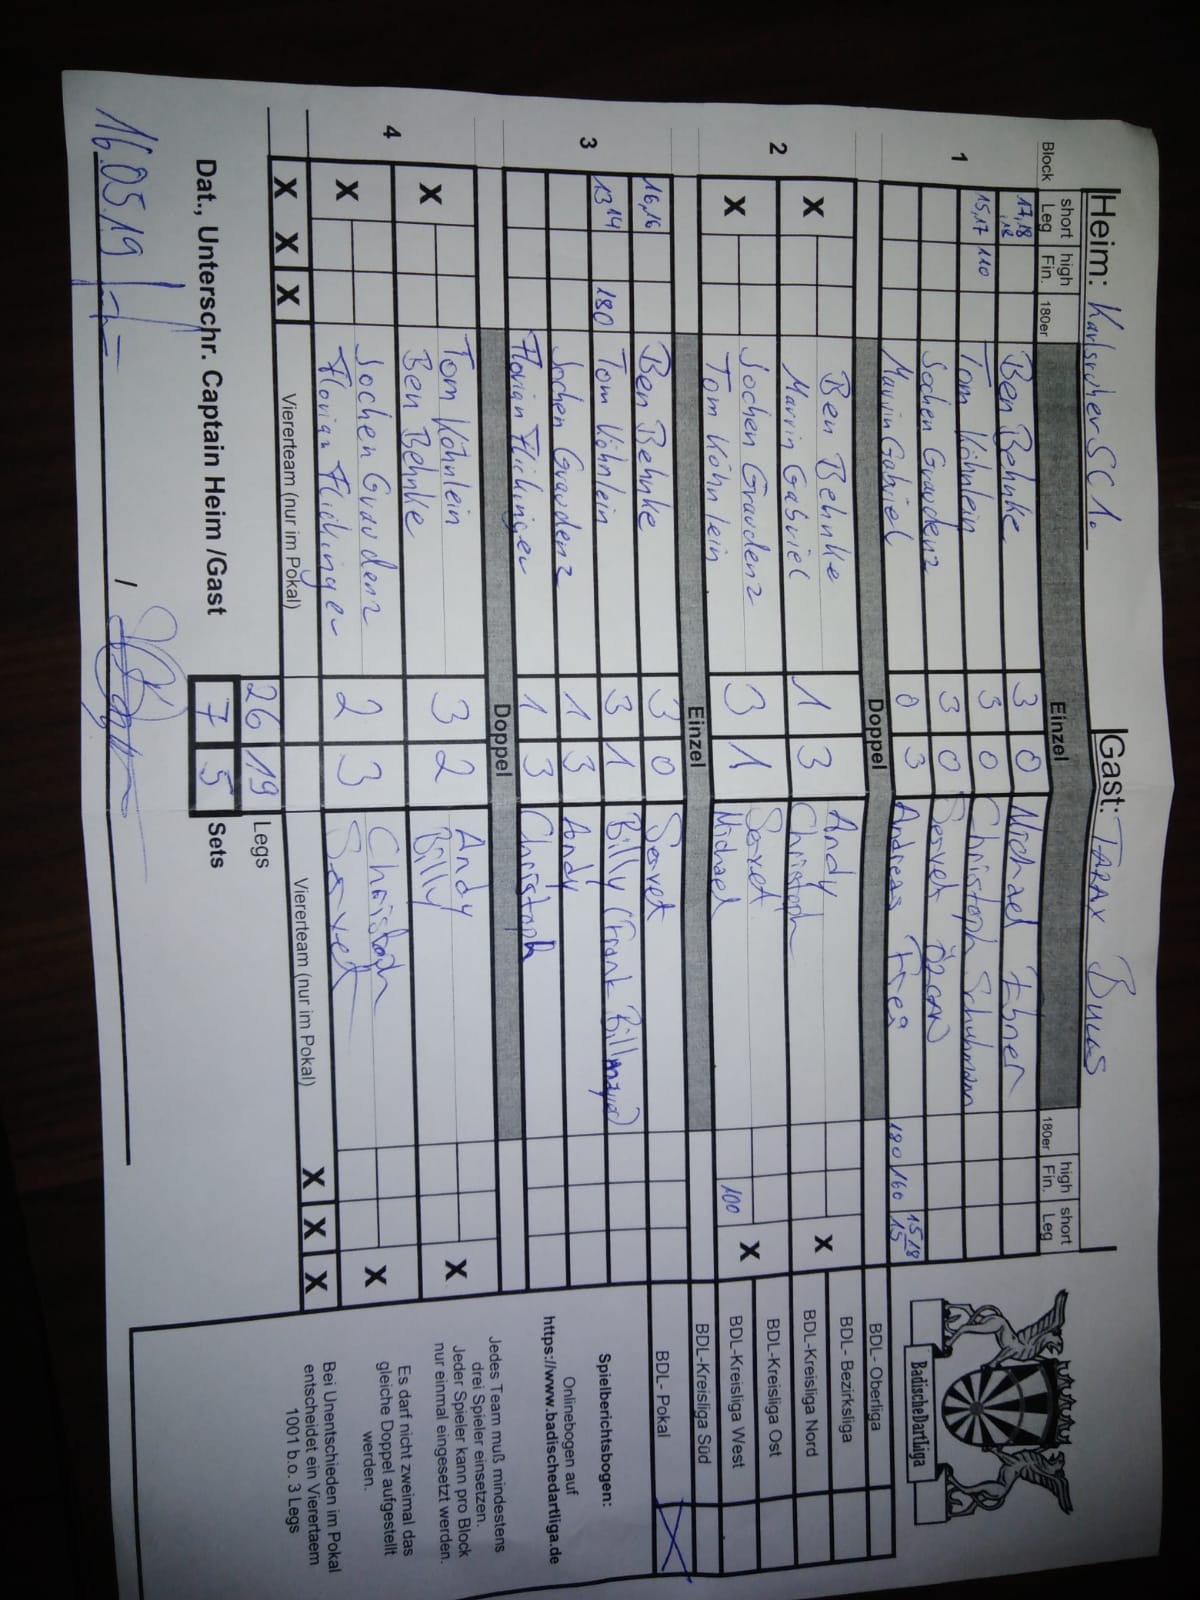 Heim: Karlsruher SC 1. Gast: TARAX Bulls
Block short Leg high Fin. 180er Einzel 180er high Fin. short Leg
1
17,18,18 Ben Behnke 3 0 Michael Ebner
15,17 110 Tom Köhnlein 3 0 Christoph Schuhmann
Jochen Graudenz 3 0 Servet Özcan
Marvin Gabriel 0 3 Andreas 180 160 15 18 15
Doppel
2
X Ben Behnke 1 3 Andy X
Marvin Gabriel Christoph
X Jochen Graudenz 3 1 Servet X
Tom Köhnlein Michael 100
Einzel
3
16,16 Ben Behnke 3 0 Servet
13 14 180 Tom Köhnlein 3 1 Billy (Frank Billmayer)
Jochen Graudenz 1 3 Andy
Florian Flickinger 1 3 Christoph
Doppel
4
X Tom Köhnlein 3 2 Andy X
Ben Behnke Billy
X Jochen Graudenz 2 3 Christoph X
Florian Flickinger Servet
X X X Viererteam (nur im Pokal) Viererteam (nur im Pokal) X X X
26 19 Legs
Dat., Unterschr. Captain Heim /Gast 7 5 Sets
16.05.19 /
BadischeDartLiga
BDL- Oberliga
BDL- Bezirksliga
BDL-Kreisliga Nord
BDL-Kreisliga Ost
BDL-Kreisliga West
BDL-Kreisliga Süd
BDL- Pokal X
Spielberichtsbogen:
Onlinebogen auf
https://www.badischedartliga.de
Jedes Team muß mindestens
drei Spieler einsetzen.
Jeder Spieler kann pro Block
nur einmal eingesetzt werden.
Es darf nicht zweimal das
gleiche Doppel aufgestellt
werden.
Bei Unentschieden im Pokal
entscheidet ein Vierertaem
1001 b.o. 3 Legs